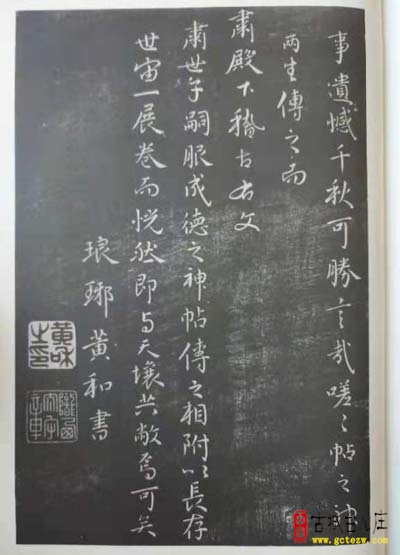 事遺憾千秋可勝言哉嗟々帖之神
兩生傳之而
肅殿下稽古右文
肅世子嗣服成德之神帖傳之相附以長存
世宙一展卷而恍然即与天壤共敝焉可矣
琅琊黃和書
黃和之印
古城台儿庄
www.gctezw.com